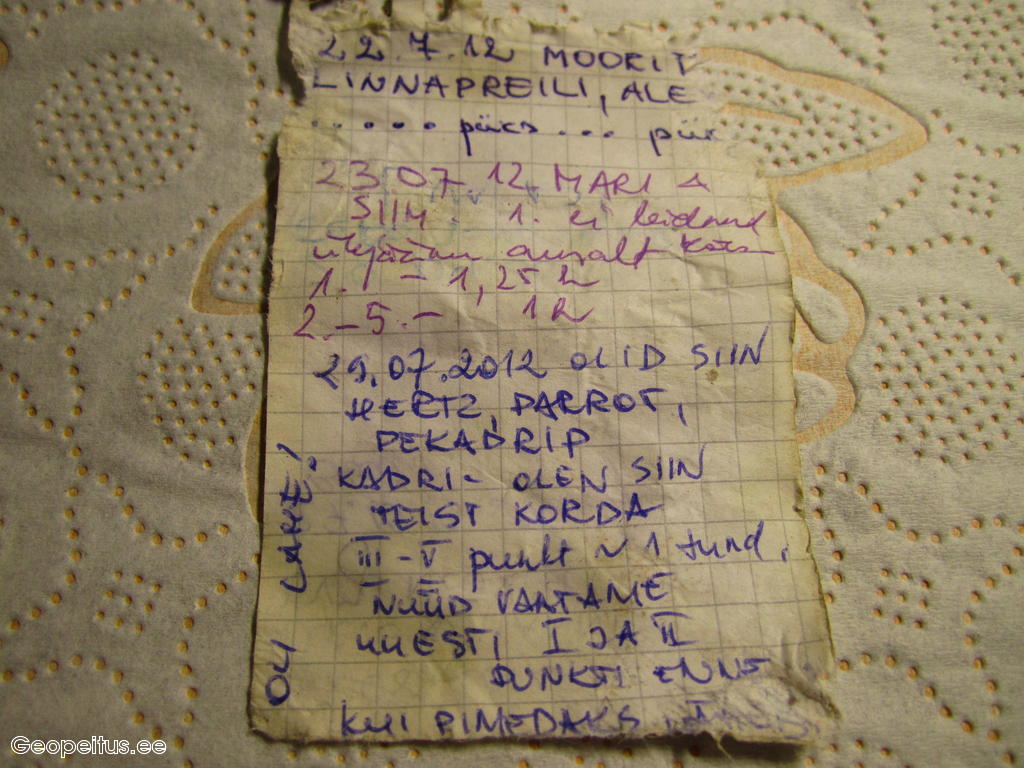 22.7.12 MOORIT
LINNAPREILI, ALE
..... püks ... pük
23.07.12 MARI &
SIIM. 1. ei leidnud
1. - 1,25 h
2.-5.- 1h
29.07.2012 OLID SIIN
HERTZ, PARROT,
PEKADRIP
KADRI- OLEN SIIN
TEIST KORDA
III-V punkt ~ 1 tund.
NÜÜD VAATAME
UUESTI I JA II
PUNKTI ENNE
KUI PIMEDAKS
OU LAHE!
Geopeitus.ee